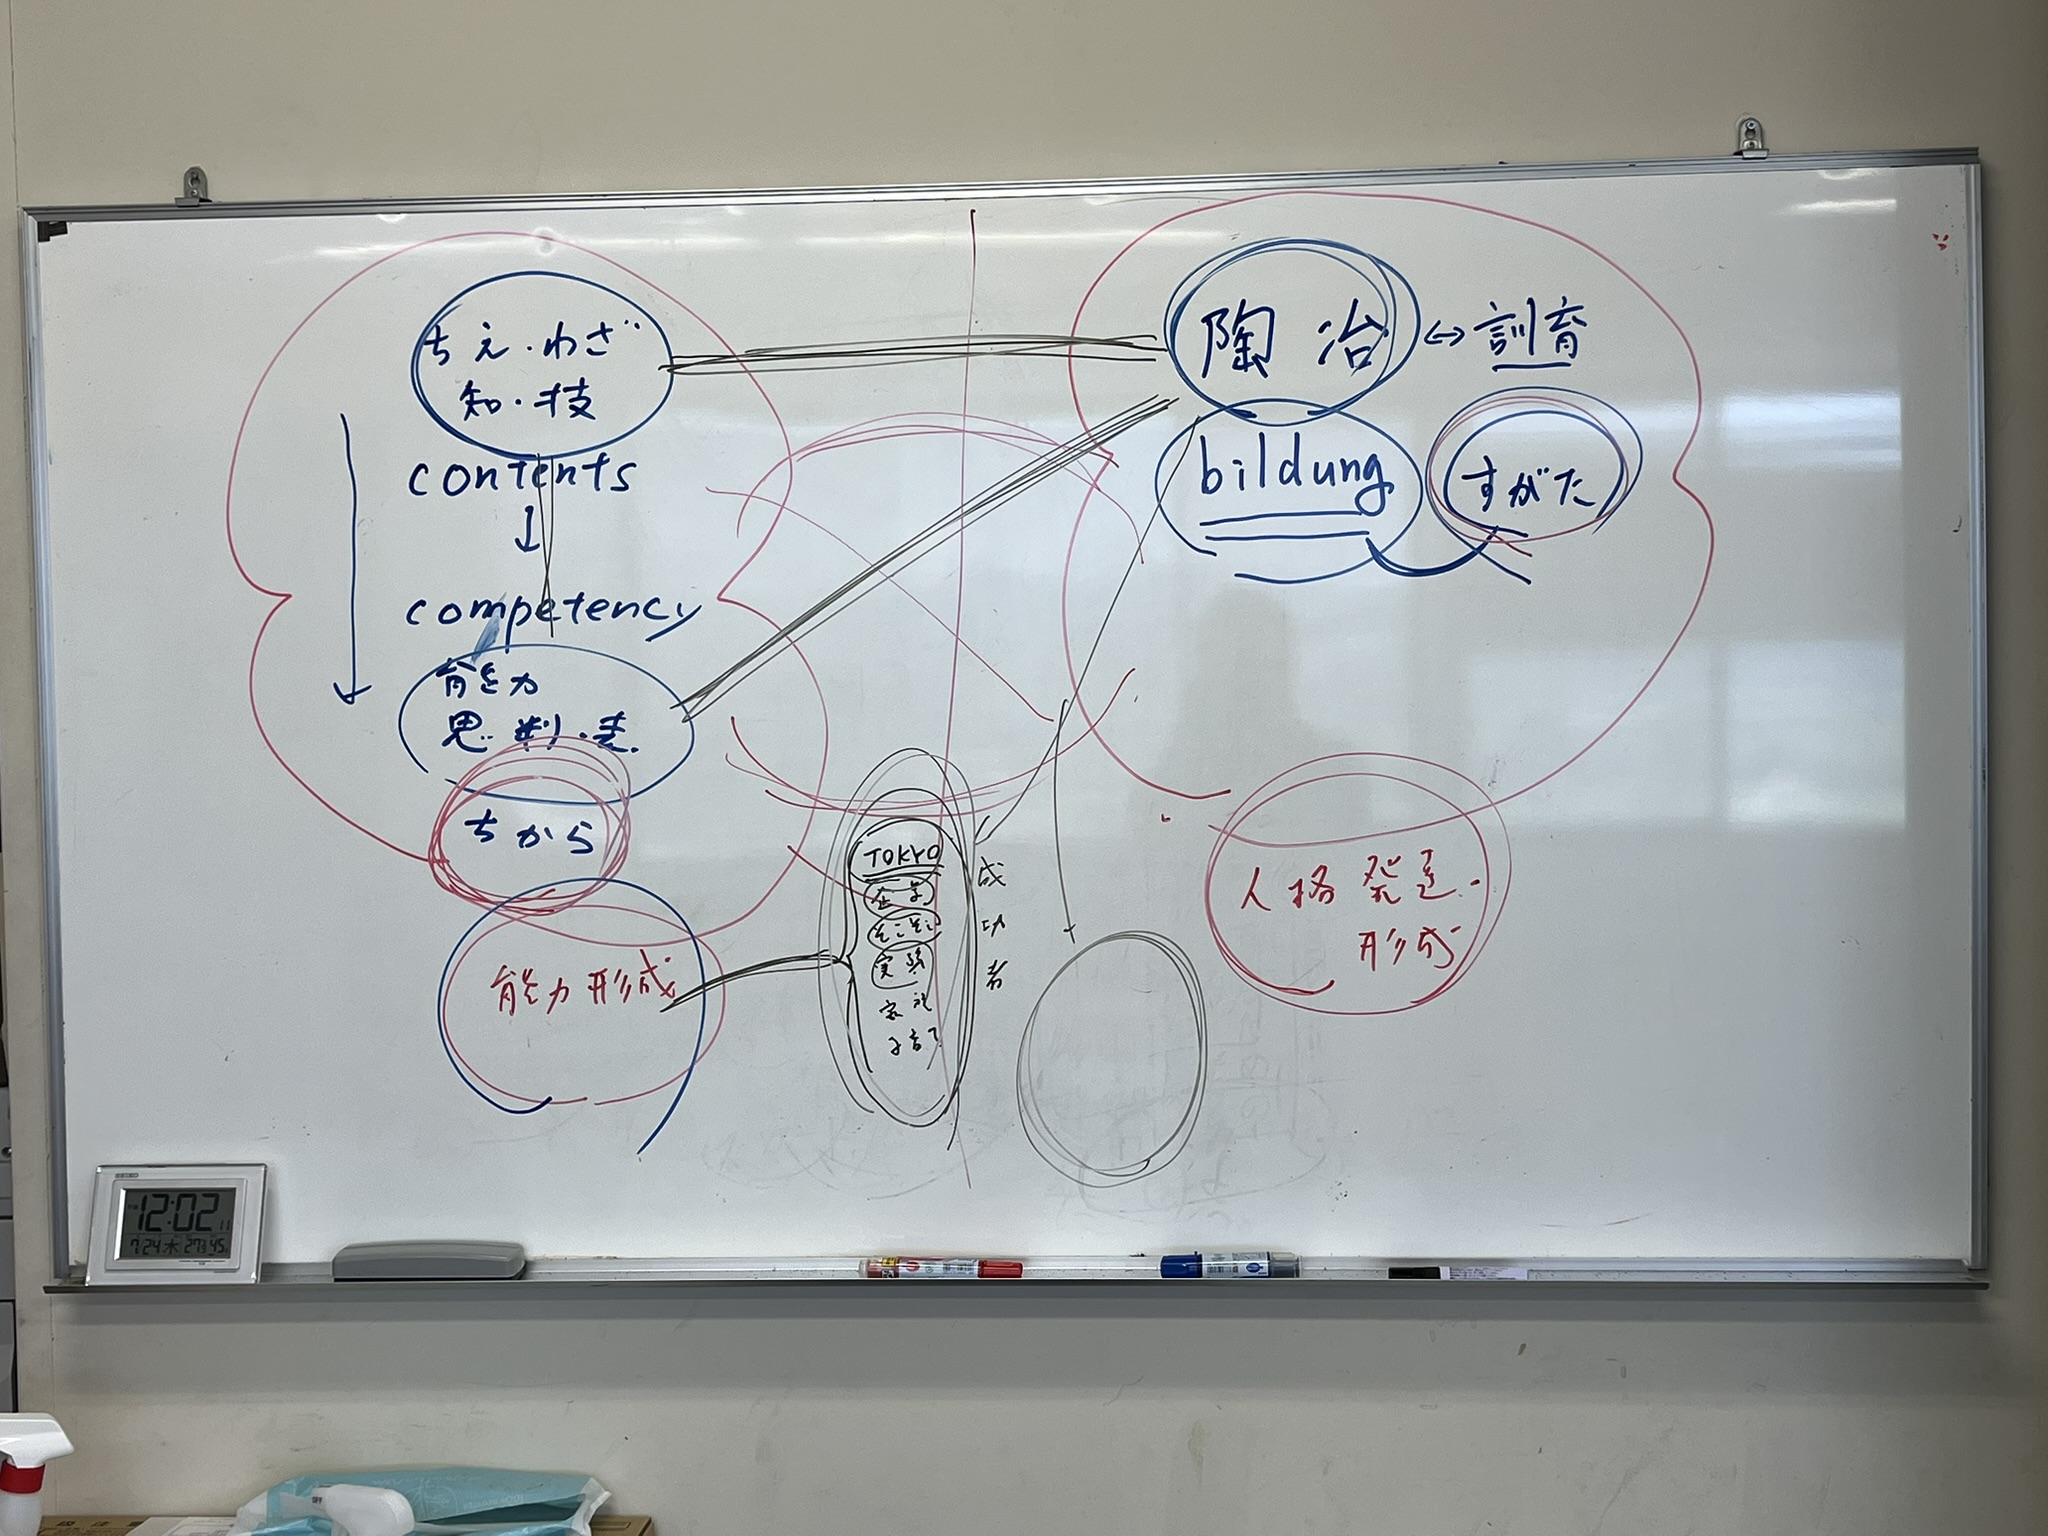 ちえ・わざ
知・技
contents
↓
competency
能力
思・判・表
ちから
能力形成
陶冶 ↔ 訓育
bildung
すがた
TOKYO
成功者
子育て
人格 発達・
形成
SEIKO
12:02
7/24 木